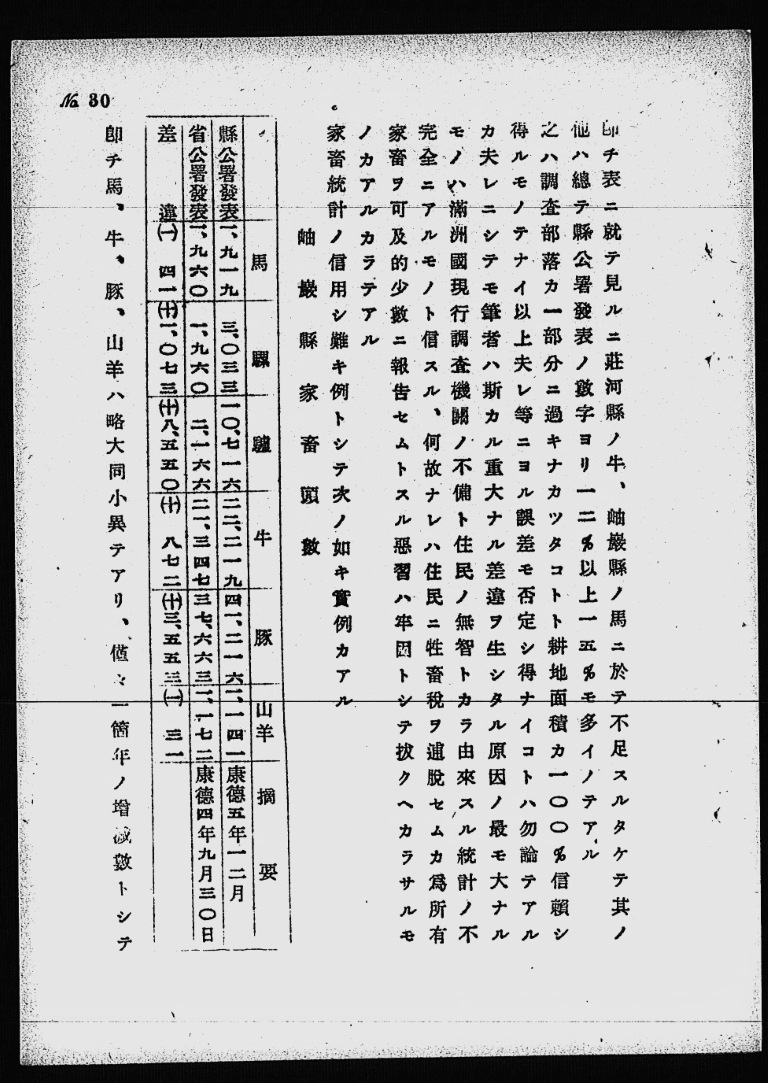 No. 30
即チ表ニ就テ見ルニ莊河縣ノ牛、岫巖縣ノ馬ニ於テ不足スルタケテ其ノ
他ハ總テ縣公署發表ノ數字ヨリ一二％以上一五％モ多イノテアル
之ハ調査部落カ一部分ニ過キナカツタコトト耕地面積カ一〇〇％信賴シ
得ルモノテナイ以上夫レ等ニヨル誤差モ否定シ得ナイコトハ勿論テアル
カ夫レニシテモ筆者ハ斯カル重大ナル差違ヲ生シタル原因ノ最モ大ナル
モノハ滿洲國現行調査機關ノ不備ト住民ノ無智トカラ由來スル統計ノ不
完全ニアルモノト信スル、何故ナレハ住民ニ牲畜稅ヲ逋脫セムカ爲所有
家畜ヲ可及的少數ニ報告セムトスル惡習ハ牢固トシテ拔クヘカラサルモ
ノカアルカラテアル
家畜統計ノ信用シ難キ例トシテ次ノ如キ實例カアル
岫巖縣家畜頭數
馬 騾 驢 牛 豚 山羊 摘要
縣公署發表 一、九一九 三、〇三三 一〇、七一六 二二、二一九 四一、二一六 一、一四一 康德五年一二月
省公署發表 一、九六〇 一、九六〇 二、一六六 二一、三四七 三七、六六三 一、一七二 康德四年九月三〇日
差違 (一) 四一 (十)一、〇七三 (十)八、五五〇 (十) 八七二 (十)三、五五三 (一) 三一
卽チ馬、牛、豚、山羊ハ略大同小異テアリ、僅々一箇年ノ增減數トシテ